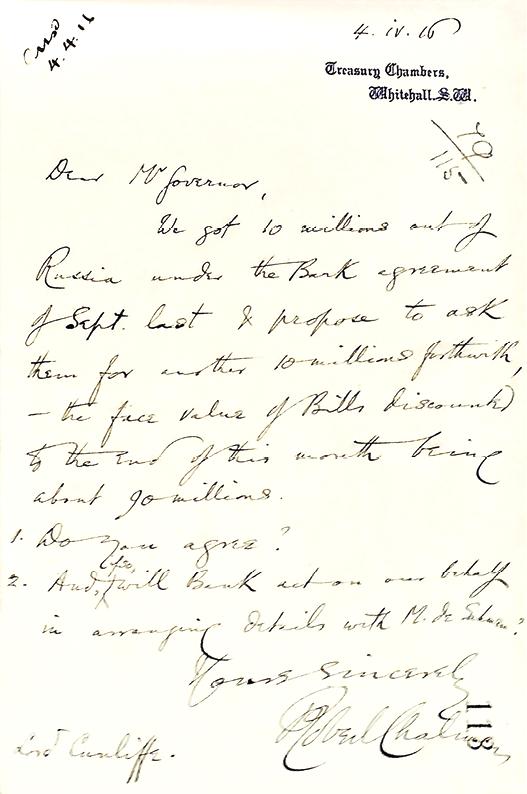 4.4.16
4. iv. 16
Treasury Chambers,
Whitehall. S.W.
79
115
Dear Mr Governor,
We got 10 millions out of
Russia under the Bank agreement
of Sept. last & propose to ask
them for another 10 millions forthwith,
– the face value of Bills discounted
to the end of this month being
about 90 millions.
1. Do you agree?
2. And, if so, will Bank act on our behalf
in arranging details with M. de ?
Yours sincerely
Robert Chalmers
Lord Cunliffe.
118